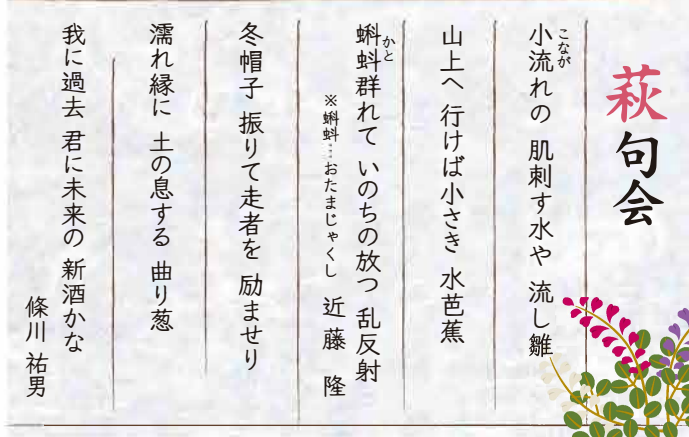 萩句会
小流れの 肌刺す水や 流し雛
こなが
山上へ 行けば小さき 水芭蕉
蝌蚪群れて いのちの放つ 乱反射
かと
※蝌蚪…おたまじゃくし 近藤 隆
冬帽子 振りて走者を 励ませり
濡れ縁に 土の息する 曲り葱
我に過去 君に未来の 新酒かな
條川 祐男